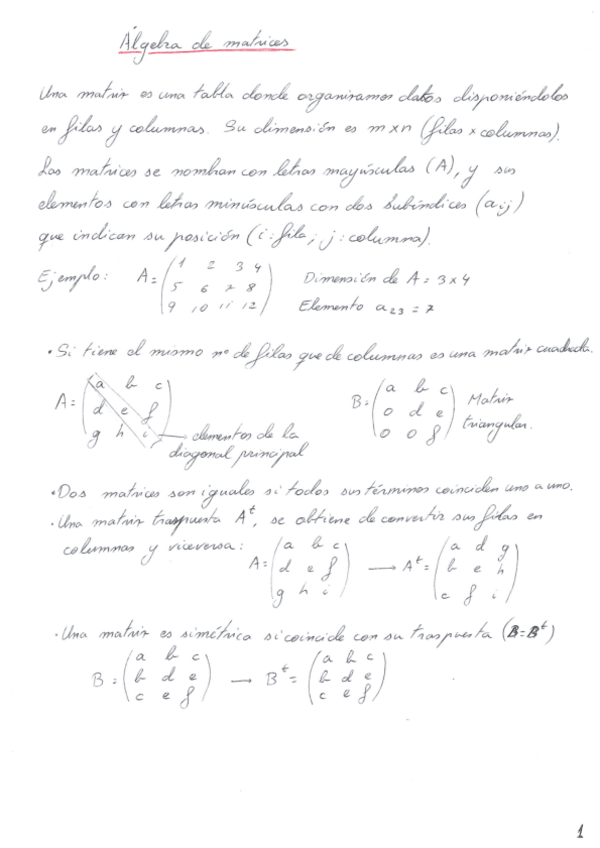 Álgebra de matrices
Una matriz es una tabla donde organizamos datos disponiéndolos
en filas y columnas. Su dimensión es m×n (filas × columnas).
Las matrices se nombran con letras mayúsculas (A), y sus
elementos con letras minúsculas con dos subíndices (aij)
que indican su posición (i: fila, j: columna).
Ejemplo: A = (1 2 3 4
5 6 7 8
9 10 11 12)
Dimensión de A = 3×4
Elemento a23 = 7
· Si tiene el mismo nº de filas que de columnas es una matriz cuadrada.
A = (a b c
d e f
g h i)
elementos de la
diagonal principal
B = (a b c
0 d e
0 0 f)
Matriz
triangular.
· Dos matrices son iguales si todos sus términos coinciden uno a uno.
· Una matriz traspuesta Aᵗ, se obtiene de convertir sus filas en
columnas y viceversa:
A = (a b c
d e f
g h i)
→ Aᵗ = (a d g
b e h
c f i)
· Una matriz es simétrica si coincide con su traspuesta (B=Bᵗ)
B = (a b c
b d e
c e f)
→ Bᵗ = (a b c
b d e
c e f)
1